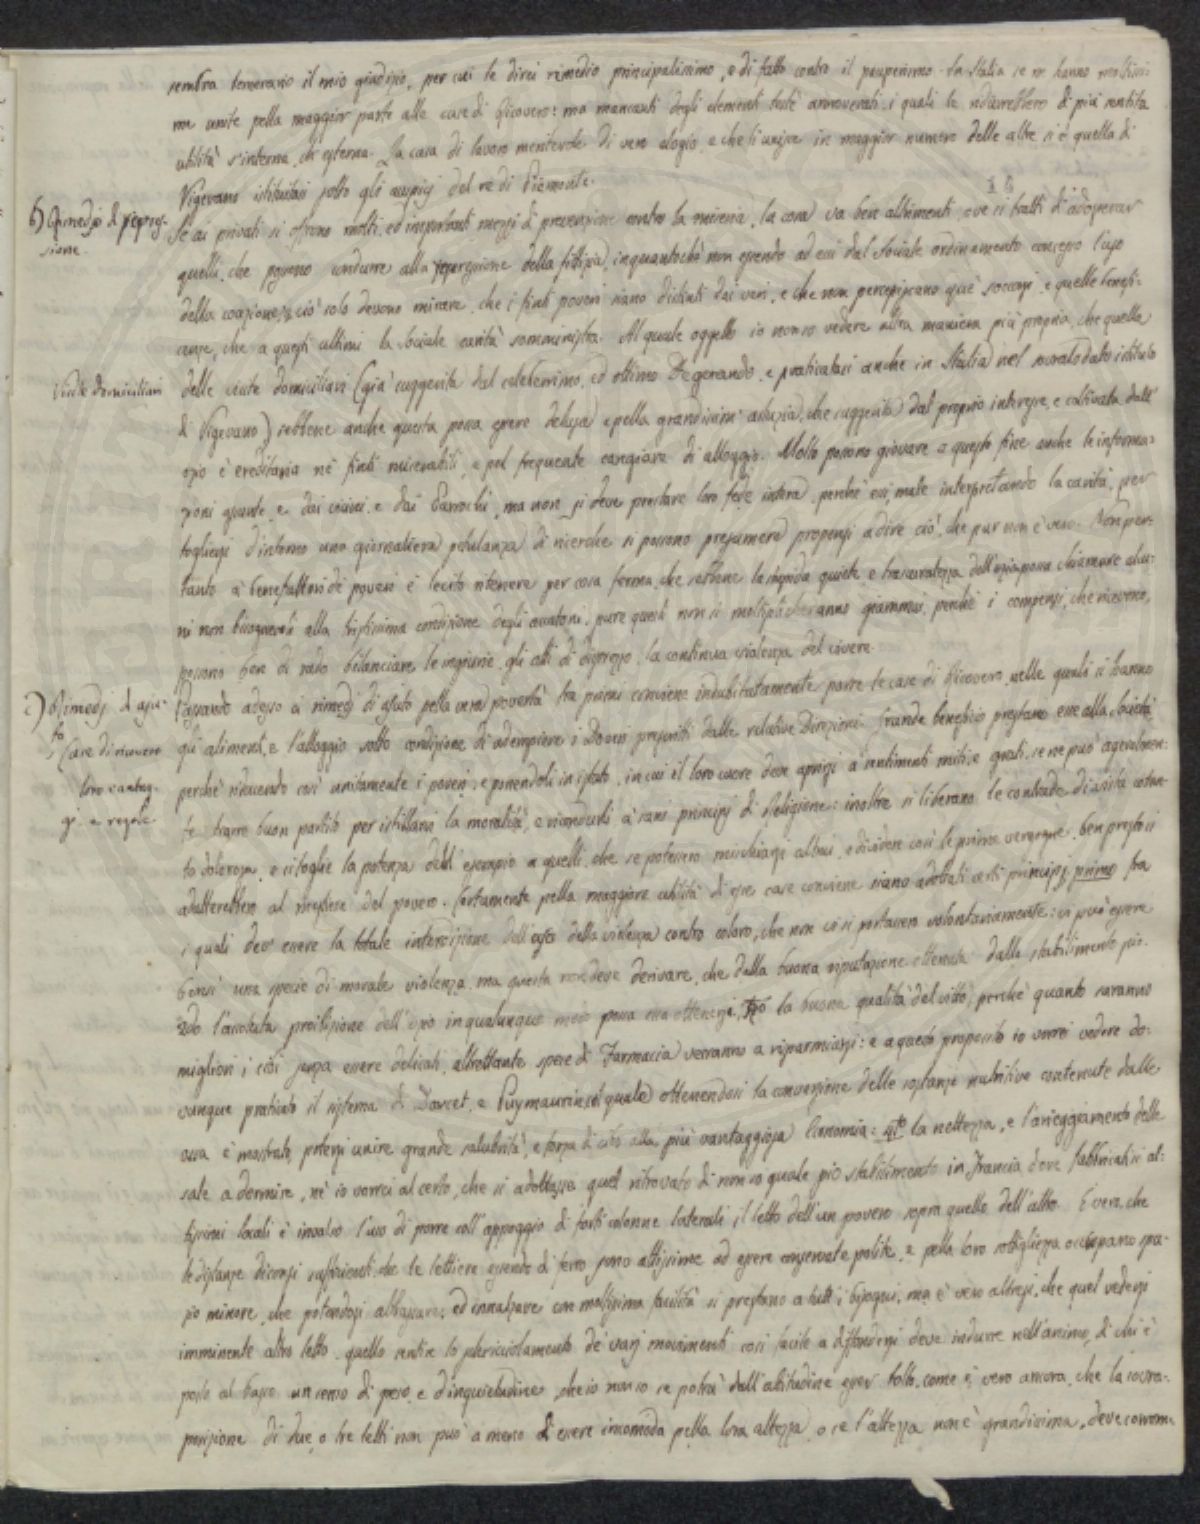 sembra temerario il mio giudizio, per cui le direi rimedio principalissimo, e di fatto contro il pauperismo. In Italia se ne hanno moltissi-
me unite pella maggior parte alle case di Ricovero: ma mancanti degli elementi testè annoverati, i quali le ridurrebbero di più sentita
utilità s'interna, ch'esterna. La casa di lavoro meritevole di vero elogio, e che si unisce in maggior numero delle altre si è quella di
Vigevano istituitasi sotto gli auspicj del re di Piemonte.
b) Rimedj di repres-
sione.
Se ai privati si offrono molti, ed importanti mezzi di prevenzione contro la miseria, la cosa va bene altrimenti, ove si tratti d'adoperar
quelli, che possono condurre alla repressione della fittizia, inquantochè non essendo ad essi dal Sociale ordinamento concesso l'uso
della coazione, a ciò solo devono mirare, che i finti poveri siano distinti dai veri, e che non percepiscano que' soccorsi, e quelle benefi-
cenze, che a questi ultimi la Sociale carità somministra. Al quale oggetto io non so vedere altra maniera più propria, che quella
Visite domiciliari
delle visite domiciliari (già suggerita dal celeberrimo, ed ottimo Degerando, e praticatasi anche in Italia nel sovralodato istituto
di Vigevano) sebbene anche questa possa essere delusa e pella grandissima astuzia, che suggerita dal proprio interesse, e coltivata dall'
ozio è ereditaria ne' finti miserabili, e pel frequente cangiare di alloggio. Molto possono giovare a questo fine anche le informa-
zioni assunte e dai vicini, e dai Parrochi, ma non si deve prestare loro fede intera, perchè essi, male interpretando la carità, per
togliersi d'intorno una giornaliera petulanza di ricerche si possono presumere propensi a dire ciò, che pur non è vero. Non per-
tanto a' benefattori de' poveri è lecito ritenere per cosa ferma, che sebbene la stupida quiete, e trascuratezza dell'ozio possa chiamare alcu-
ni non bisognevoli alla tristissima condizione degli accattoni, pure questi non si moltiplicheranno giammai, perchè i compensi, che ricevono,
possono ben di rado bilanciare le ingiurie, gli atti di disprezzo, la continua violenza del vivere.
c) Rimedj di aju-
to
Case di ricovero
loro vantag-
gi e regole
Passando adesso ai rimedj di ajuto pella vera povertà tra primi conviene indubitatamente porre le case di Ricovero, nelle quali si hanno
gli alimenti, e l'alloggio sotto condizione di adempiere i Doveri prescritti dalle relative Direzioni. Grande beneficio prestano esse alla Società
perchè riducendo così unitamente i poveri, e ponendoli in istato, in cui il loro cuore deve aprirsi a' sentimenti miti, e grati, se ne può agevolmen-
te trarre buon partito per istillarvi la moralità, e ricondurli a' sani principj di Religione: inoltre si liberano le contrade di vista cotan-
to dolorosa, e si toglie la potenza dell'esempio a quelli, che se potessero mischiarsi altrui, e dividere così le prime vergogne, ben presto si
adatterebbero al mestiere del povero. Certamente pella maggiore utilità di esse case conviene siano adottati certi principj; primo fra
i quali dev'essere la totale interdizione dell'uso della violenza contro coloro, che non vi si portassero volontariamente: vi può essere
bensì una specie di morale violenza, ma questa non deve derivare, che dalla buona riputazione ottenuta dallo stabilimento pio.
2do l'accertata proibizione dell'ozio in qualunque modo possa ella ottenersi, 3zo la buona qualità del vitto, perchè quanto saranno
migliori i cibi senza essere delicati, altrettante spese di Farmacia verranno a risparmiarsi: e a questo proposito io vorrei vedere do-
vunque praticato il sistema di Darcet, e Puymaurin, col quale ottenendosi la conversione delle sostanze nutritive contenute dalle
ossa è mostrato, potersi unire grande salubrità, e forza di cibo alla più vantaggiosa Economia: 4to la nettezza, e l'arieggiamento delle
sale a dormire, nè io vorrei al certo, che si adottasse quel ritrovato di non so quale pio stabilimento in Francia dove fabbricatisi al-
tissimi locali è invalso l'uso di porre coll'appoggio di forti colonne laterali il letto dell'un povero sopra quello dell'altro. È vero, che
le distanze diconsi sufficienti, che le lettiere essendo di ferro sono attissime ad essere conservate polite, e pella loro sottigliezza occupano spa-
zio minore, che potendosi abbassare, ed innalzare con moltissima facilità si prestano a tutti i bisogni, ma è vero altresì, che quel vedersi
imminente altro letto, quello sentire lo scricciolamento de' varj movimenti così facile a diffondersi deve indurre nell'animo di chi è
posto al basso un senso di peso, e d'inquietudine, che io non so se potrà dall'abitudine esser tolto, come è vero ancora, che la sovra-
posizione di due, o tre letti non può a meno di essere incomoda pella loro altezza, o se l'altezza non è grandissima, deve